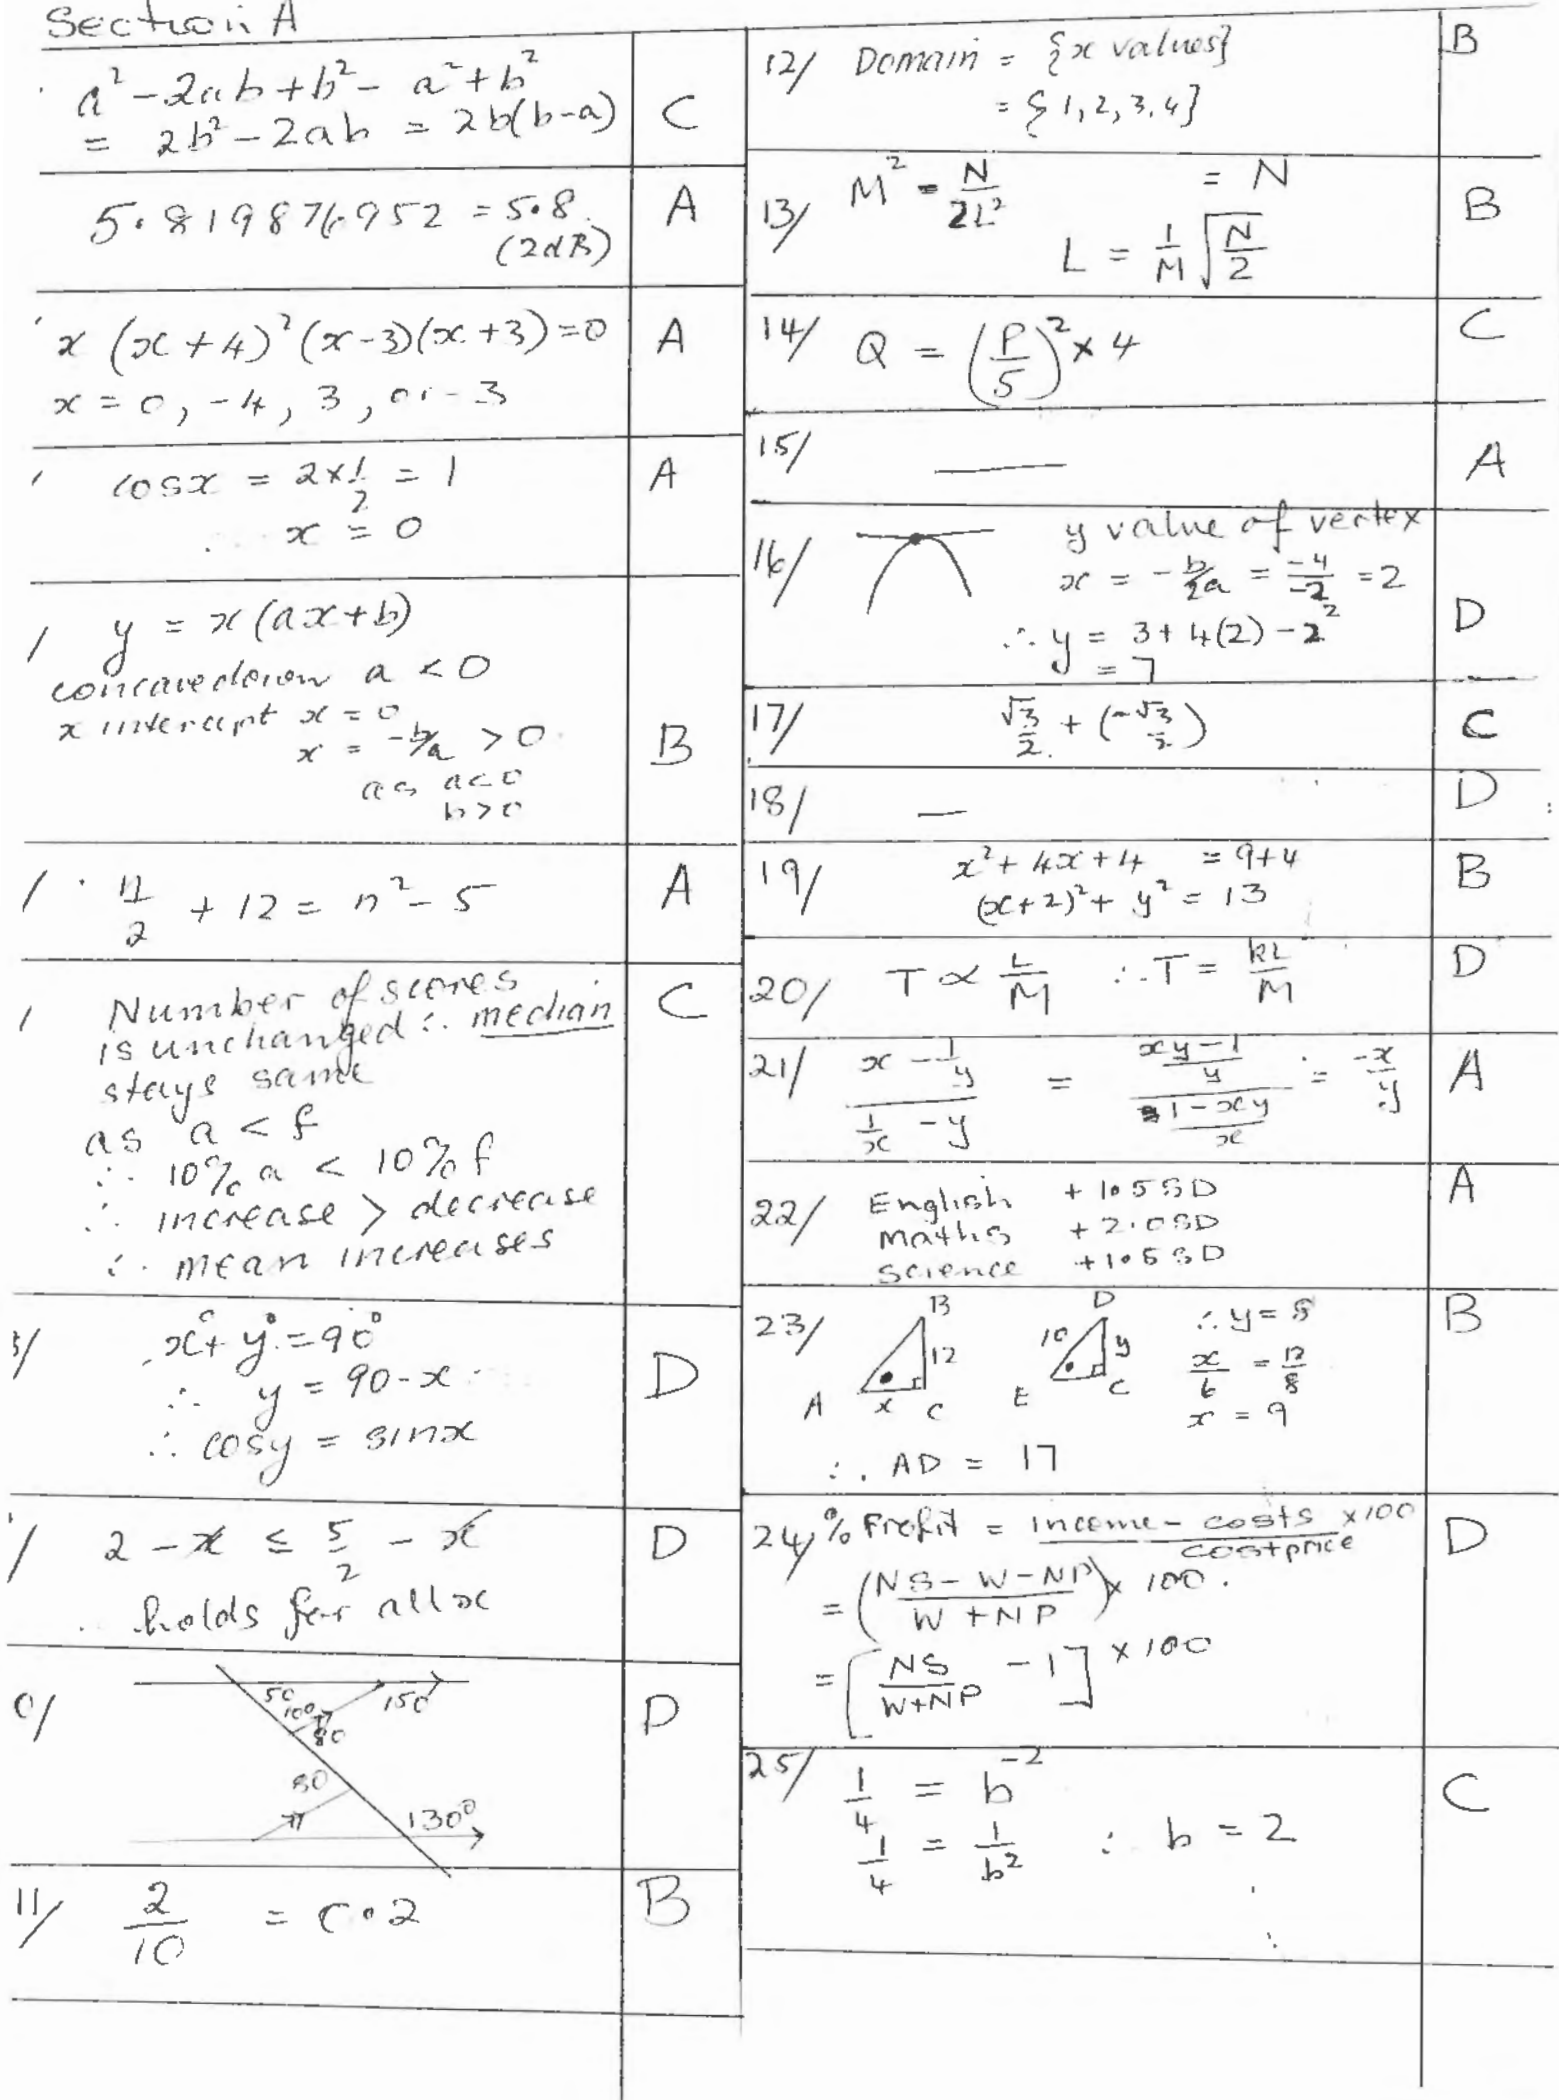 Section A
a² - 2ab + b² - a² + b²
= 2b² - 2ab = 2b(b-a)
C
5.819876952 = 5.8
A
x (x + 4)² (x - 3)(x + 3) = 0
x = 0, -4, 3, or -3
A
cos x = 2 × 1/2 = 1
∴ x = 0
A
/ y = x(ax + b)
concave down a < 0
x intercept x = 0
x = -b/a > 0
as a < 0
b > 0
B
/ n/2 + 12 = n² - 5
A
/ Number of scores
is unchanged ∴ median
stays same
as a < f
∴ 10% a < 10% f
∴ increase > decrease
∴ mean increases
C
x° + y° = 90°
∴ y = 90 - x
∴ cos y = sin x
D
/ 2 - x ≤ 5/2 - x
holds for all x
D
0/ 50 100 80 150
80 130°
D
11/ 2/10 = 0.2
B
12/ Domain = {x values}
= {1, 2, 3, 4}
B
13/ M² = N/2L² = N
L = 1/M √(N/2)
B
14/ Q = (P/5)² × 4
C
15/ —
A
16/ y value of vertex
x = -b/2a = -4/-2 = 2
∴ y = 3 + 4(2) - 2²
= 7
D
17/ √3/2 + (-√3/2)
C
18/ —
D
19/ x² + 4x + 4 = 9 + 4
(x + 2)² + y² = 13
B
20/ T ∝ L/M ∴ T = kL/M
D
21/ (x - 1/y)/(1/x - y) = ((xy - 1)/y)/((1 - xy)/x) = -x/y
A
22/ English + 1.5 SD
Maths + 2.0 SD
Science + 1.5 SD
A
23/ B 12 A x C D 10 y E C ∴ y = 8
x/6 = 12/8
x = 9
∴ AD = 17
B
24/ % Profit = (income - costs)/cost price × 100
= ((NS - W - NP)/(W + NP)) × 100.
= [NS/(W+NP) - 1] × 100
D
25/ 1/4 = b⁻²
1/4 = 1/b² ∴ b = 2
C